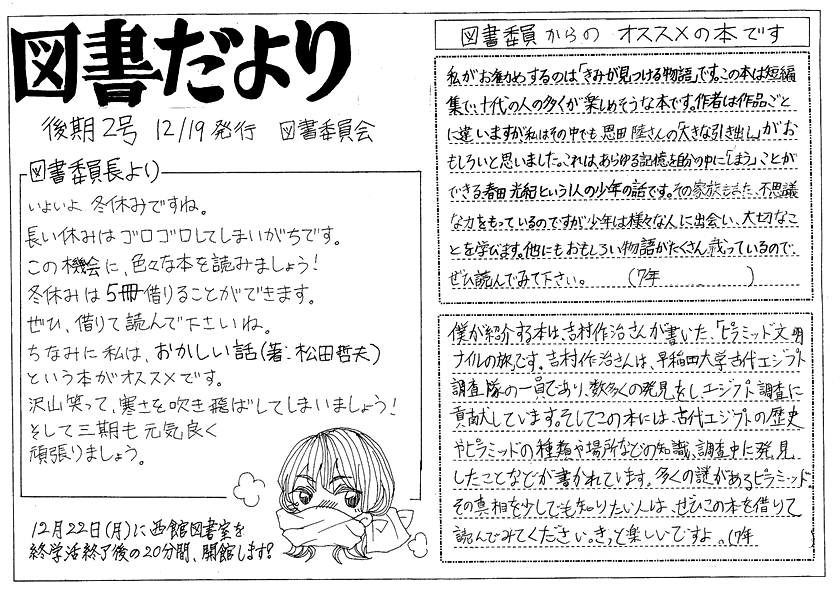 図書だより
後期2号 12/19発行 図書委員会
図書委員長より
いよいよ冬休みですね。
長い休みはゴロゴロしてしまいがちです。
この機会に、色々な本を読みましょう!
冬休みは5冊借りることができます。
ぜひ、借りて読んで下さいね。
ちなみに私は、おかしい話(著:松田哲夫)
という本がオススメです。
沢山笑って、寒さを吹き飛ばしてしまいましょう!
そして三期も元気良く
頑張りましょう。
12月22日(月)に西館図書室を
終学活終了後の20分間、開館します!
図書委員からの オススメの本です
私がお勧めするのは「きみが見つける物語」です。この本は短編
集で、十代の人の多くが楽しめそうな本です。作者は作品ごと
に違いますが、私はその中でも恩田 陸さんの「大きな引き出し」がお
もしろいと思いました。これは、あらゆる記憶を自分の中に「しまう」ことが
できる春田光紀という1人の少年の話です。その家族もまた、不思議
な力をもっているのですが少年は様々な人に出会い、大切なこ
とを学びます。他にもおもしろい物語がたくさん載っているので、
ぜひ読んでみて下さい。 (7年 )
僕が紹介する本は、吉村作治さんが書いた、「ピラミッド文明
ナイルの旅」です。吉村作治さんは、早稲田大学古代エジプト
調査隊の一員であり、数多くの発見をし、エジプト調査に
貢献しています。そしてこの本には、古代エジプトの歴史
やピラミッドの種類や場所などの知識、調査中に発見
したことなどが書かれています。多くの謎があるピラミッド
その真相を少しでも知りたい人は、ぜひこの本を借りて
読んでみてください。きっと楽しいですよ。(7年